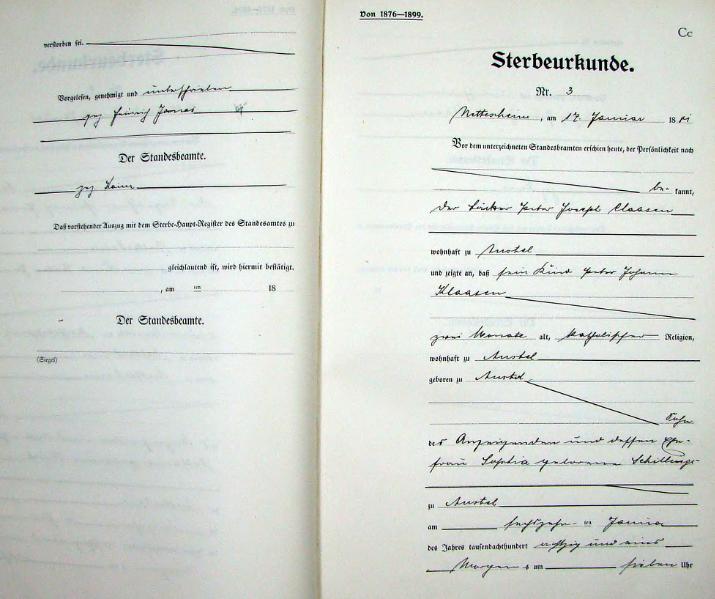 verstorben sei.
Vorgelesen, genehmigt und unterschrieben
gez Heinrich
Der Standesbeamte.
gez
Daß vorstehender Auszug mit dem Sterbe-Haupt-Register des Standesamtes zu
gleichlautend ist, wird hiermit bestätigt.
, am ten 18
Der Standesbeamte.
(Siegel)
Von 1876—1899.
Cc
Sterbeurkunde.
Nr. 3
, am 17. Januar 18 81
Vor dem unterzeichneten Standesbeamten erschien heute, der Persönlichkeit nach
be- kannt,
der Peter Joseph Claasen
wohnhaft zu Anstel
und zeigte an, daß sein Kind Peter Johann
Klaasen
zwei Monate alt, katholischer Religion,
wohnhaft zu Anstel
geboren zu Anstel
Sohn
des Anzeigenden und dessen Ehe-
frau Sophia geborenen Schillings
zu Anstel
am sechszehn ten Januar
des Jahres tausendachthundert achtzig und eins
Morgens um sieben Uhr